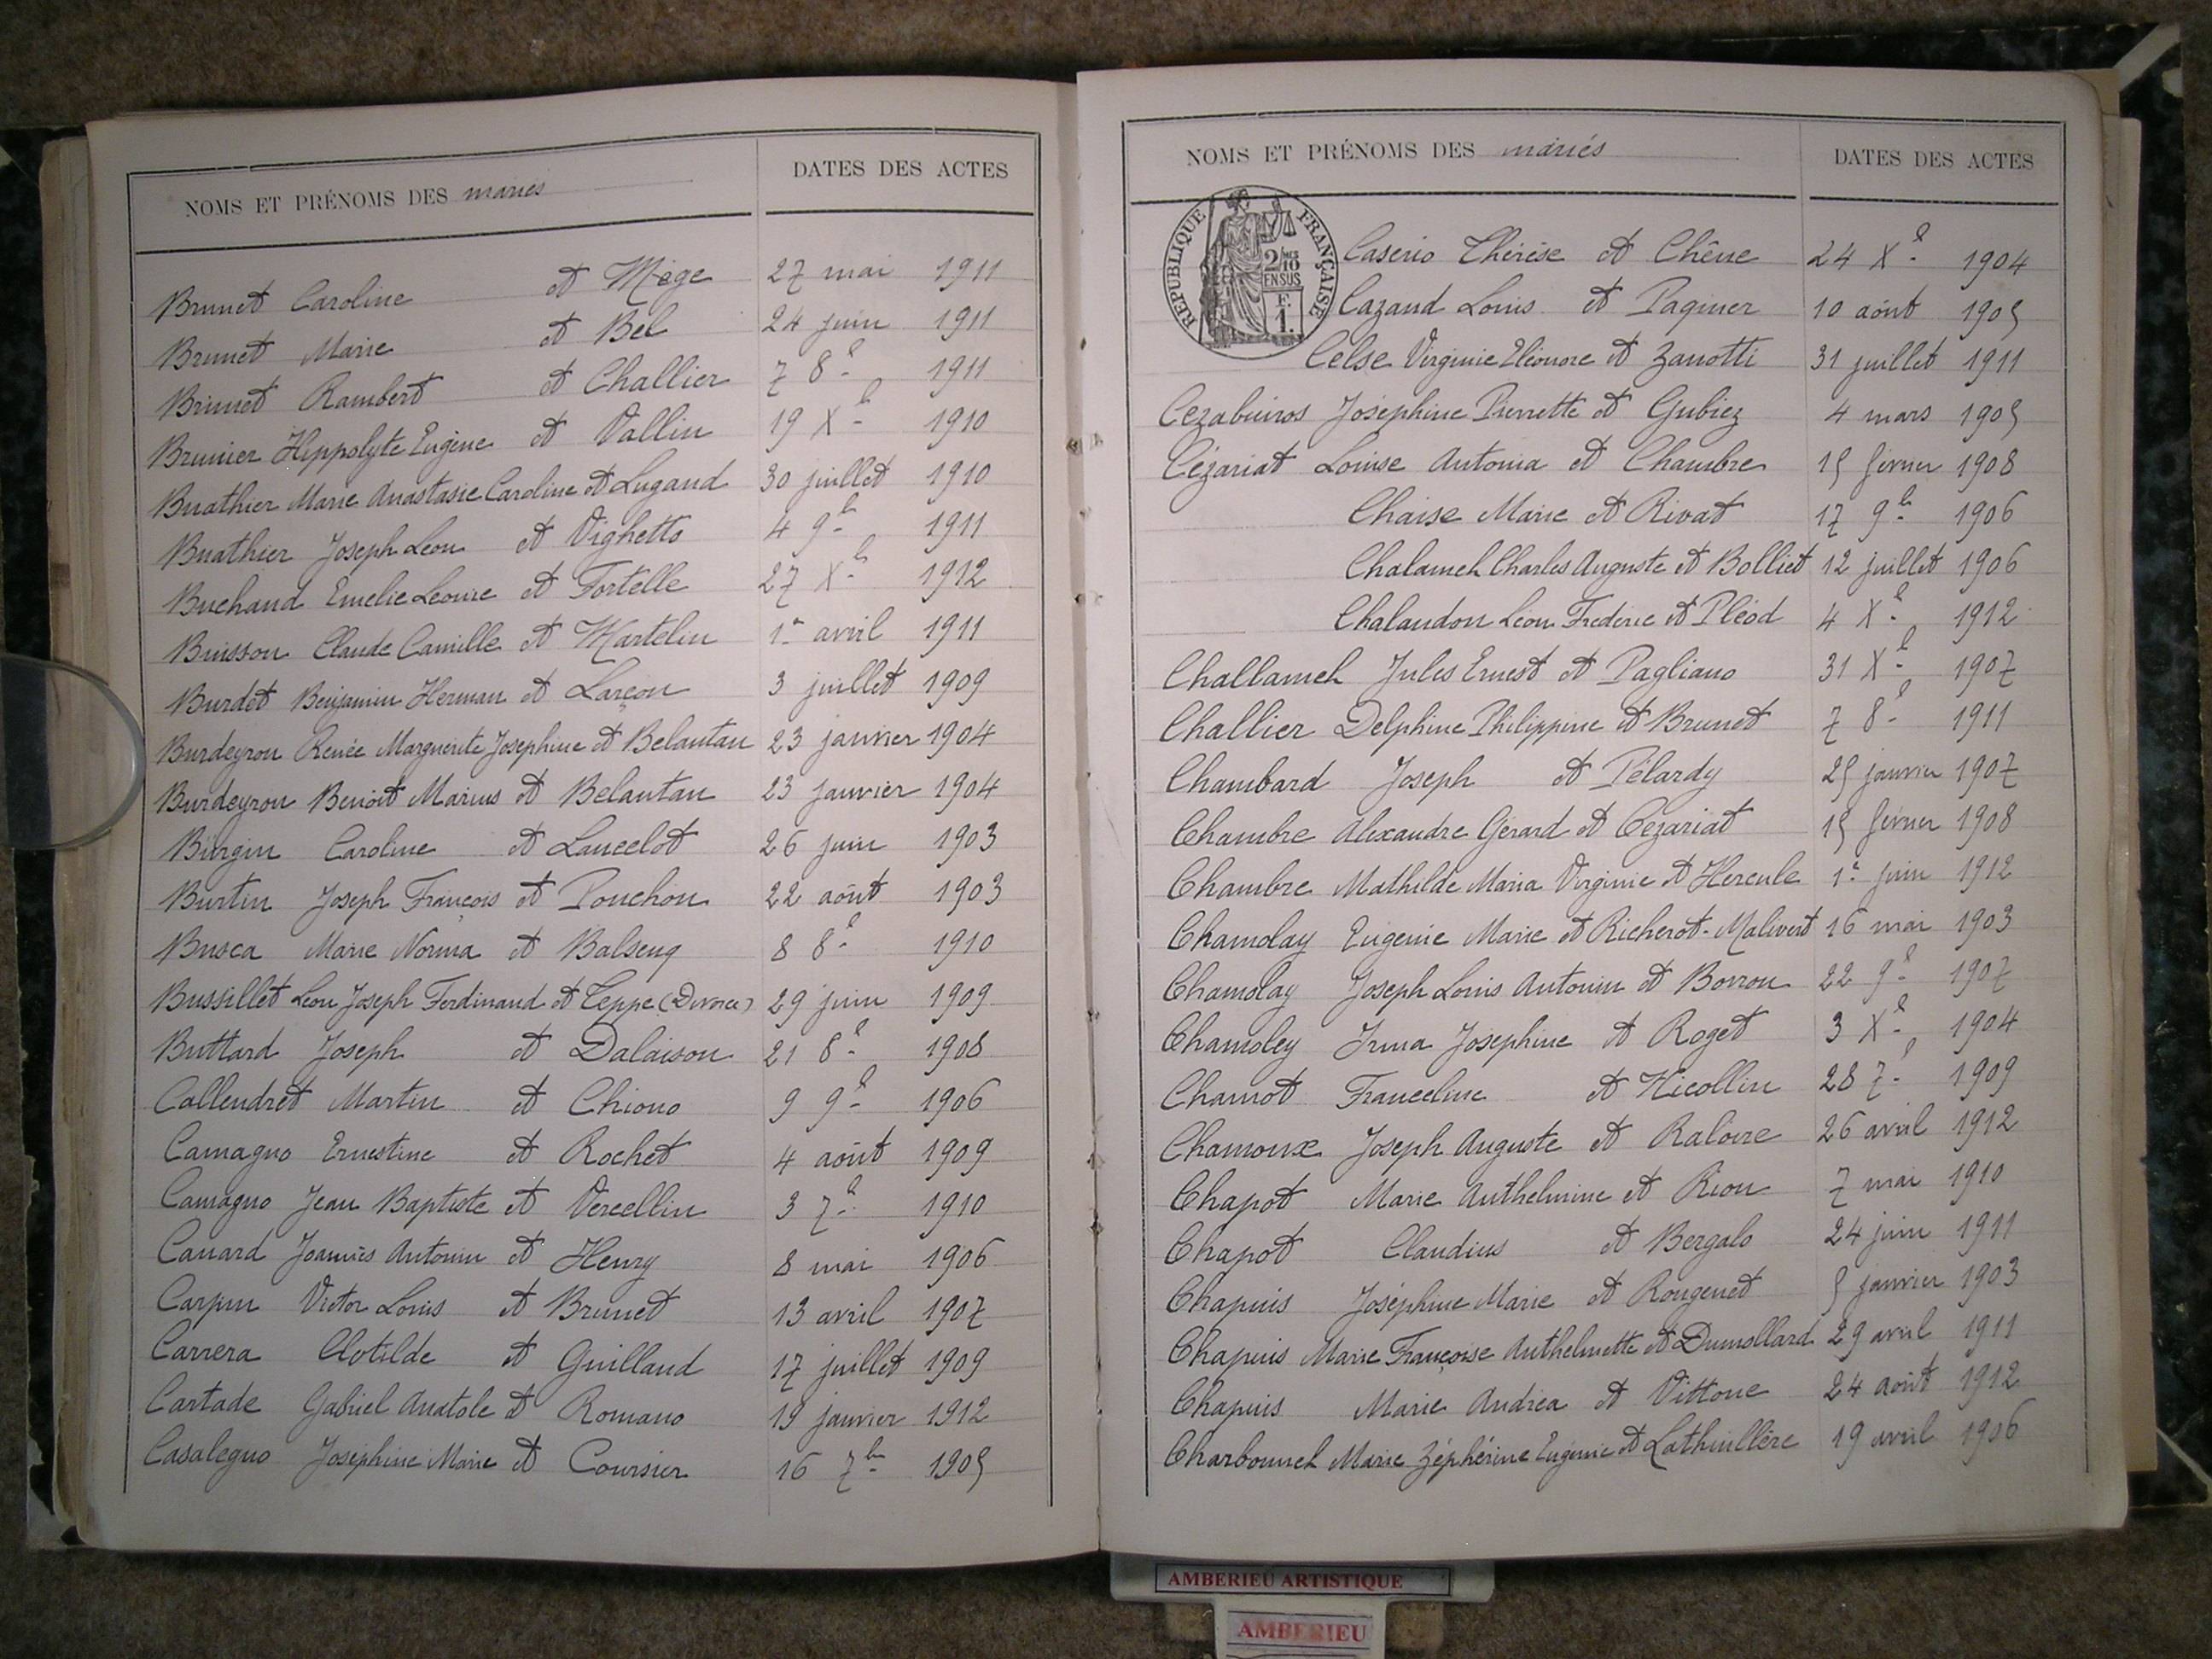 NOMS ET PRÉNOMS DES mariés DATES DES ACTES
Brunet Caroline et Mège 27 mai 1911
Brunet Marie et Bel 24 juin 1911
Brunet Rambert et Challier 7 8e 1911
Brunier Hippolyte Eugène et Vallin 19 Xb 1910
Buathier Marie Anastasie Caroline et Lugand 30 juillet 1910
Buathier Joseph Léon et Vighetto 4 9b 1911
Buchaud Emelie Leonie et Fortelle 27 Xb 1912
Buisson Claude Camille et Martelin 1er avril 1911
Burdet Benjamin Herman et Larçon 3 juillet 1909
Burdeyron Renée Marguerite Josephine et Belantan 23 janvier 1904
Burdeyron Benoit Marius et Belantan 23 janvier 1904
Bürgin Caroline et Lancelot 26 juin 1903
Burtin Joseph François et Ponchon 22 août 1903
Busca Marie Norma et Balsenq 8 8e 1910
Bussillet Léon Joseph Ferdinand et Teppe (Divorce) 29 juin 1909
Buttard Joseph et Dalaison 21 8e 1908
Callendret Martin et Chiono 9 9e 1906
Camagno Ernestine et Rochet 4 août 1909
Camagno Jean Baptiste et Vercellin 3 7e 1910
Canard Joannès Antonin et Henry 8 mai 1906
Carpin Victor Louis et Brunet 13 avril 1907
Carrera Clotilde et Guilland 17 juillet 1909
Cartade Gabriel Anatole et Romano 19 janvier 1912
Casalegno Joséphine Marie et Coursier 16 7bre 1905
NOMS ET PRÉNOMS DES mariés DATES DES ACTES
RÉPUBLIQUE FRANÇAISE
2/10 MES
EN SUS
F.
1.
Caserio Thérèse et Chêne 24 Xe 1904
Cazaud Louis et Paquier 10 août 1905
Celse Virginie Eléonore et Zanotti 31 juillet 1911
Cezabuiros Joséphine Pierrette et Gubiez 4 mars 1905
Cézariat Louise Antonia et Chambre 15 février 1908
Chaise Marie et Rivat 17 9bre 1906
Chalamel Charles Auguste et Bolliet 12 juillet 1906
Chalandon Léon Frederic et Pléod 4 Xe 1912
Challamel Jules Ernest et Pagliano 31 Xb 1907
Challier Delphine Philippine et Brunet 7 8e 1911
Chambard Joseph et Pélardy 25 janvier 1907
Chambre Alexandre Gérard et Cezariat 15 février 1908
Chambre Mathilde Maria Virginie et Hercule 1er juin 1912
Chamolay Eugenie Marie et Richerot-Malivert 16 mai 1903
Chamolay Joseph Louis Antonin et Borron 22 9e 1907
Chamoley Irma Josephine et Roget 3 Xe 1904
Chamot Franceline et Nicollin 28 7e 1909
Chamoux Joseph Auguste et Raloire 26 avril 1912
Chapot Marie Anthelmine et Riou 7 mai 1910
Chapot Claudius et Bergalo 24 juin 1911
Chapuis Joséphine Marie et Rougenet 5 janvier 1903
Chapuis Marie Françoise Anthelmette et Dumollard 29 avril 1911
Chapuis Marie Andréa et Vittone 24 août 1912
Charbonnel Marie Zéphérine Eugénie et Lathuillère 19 avril 1906
AMBERIEU ARTISTIQUE
AMBERIEU